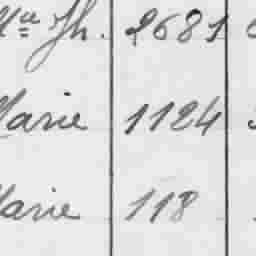 Mª Th. 2681
Marie 1124
Marie 118